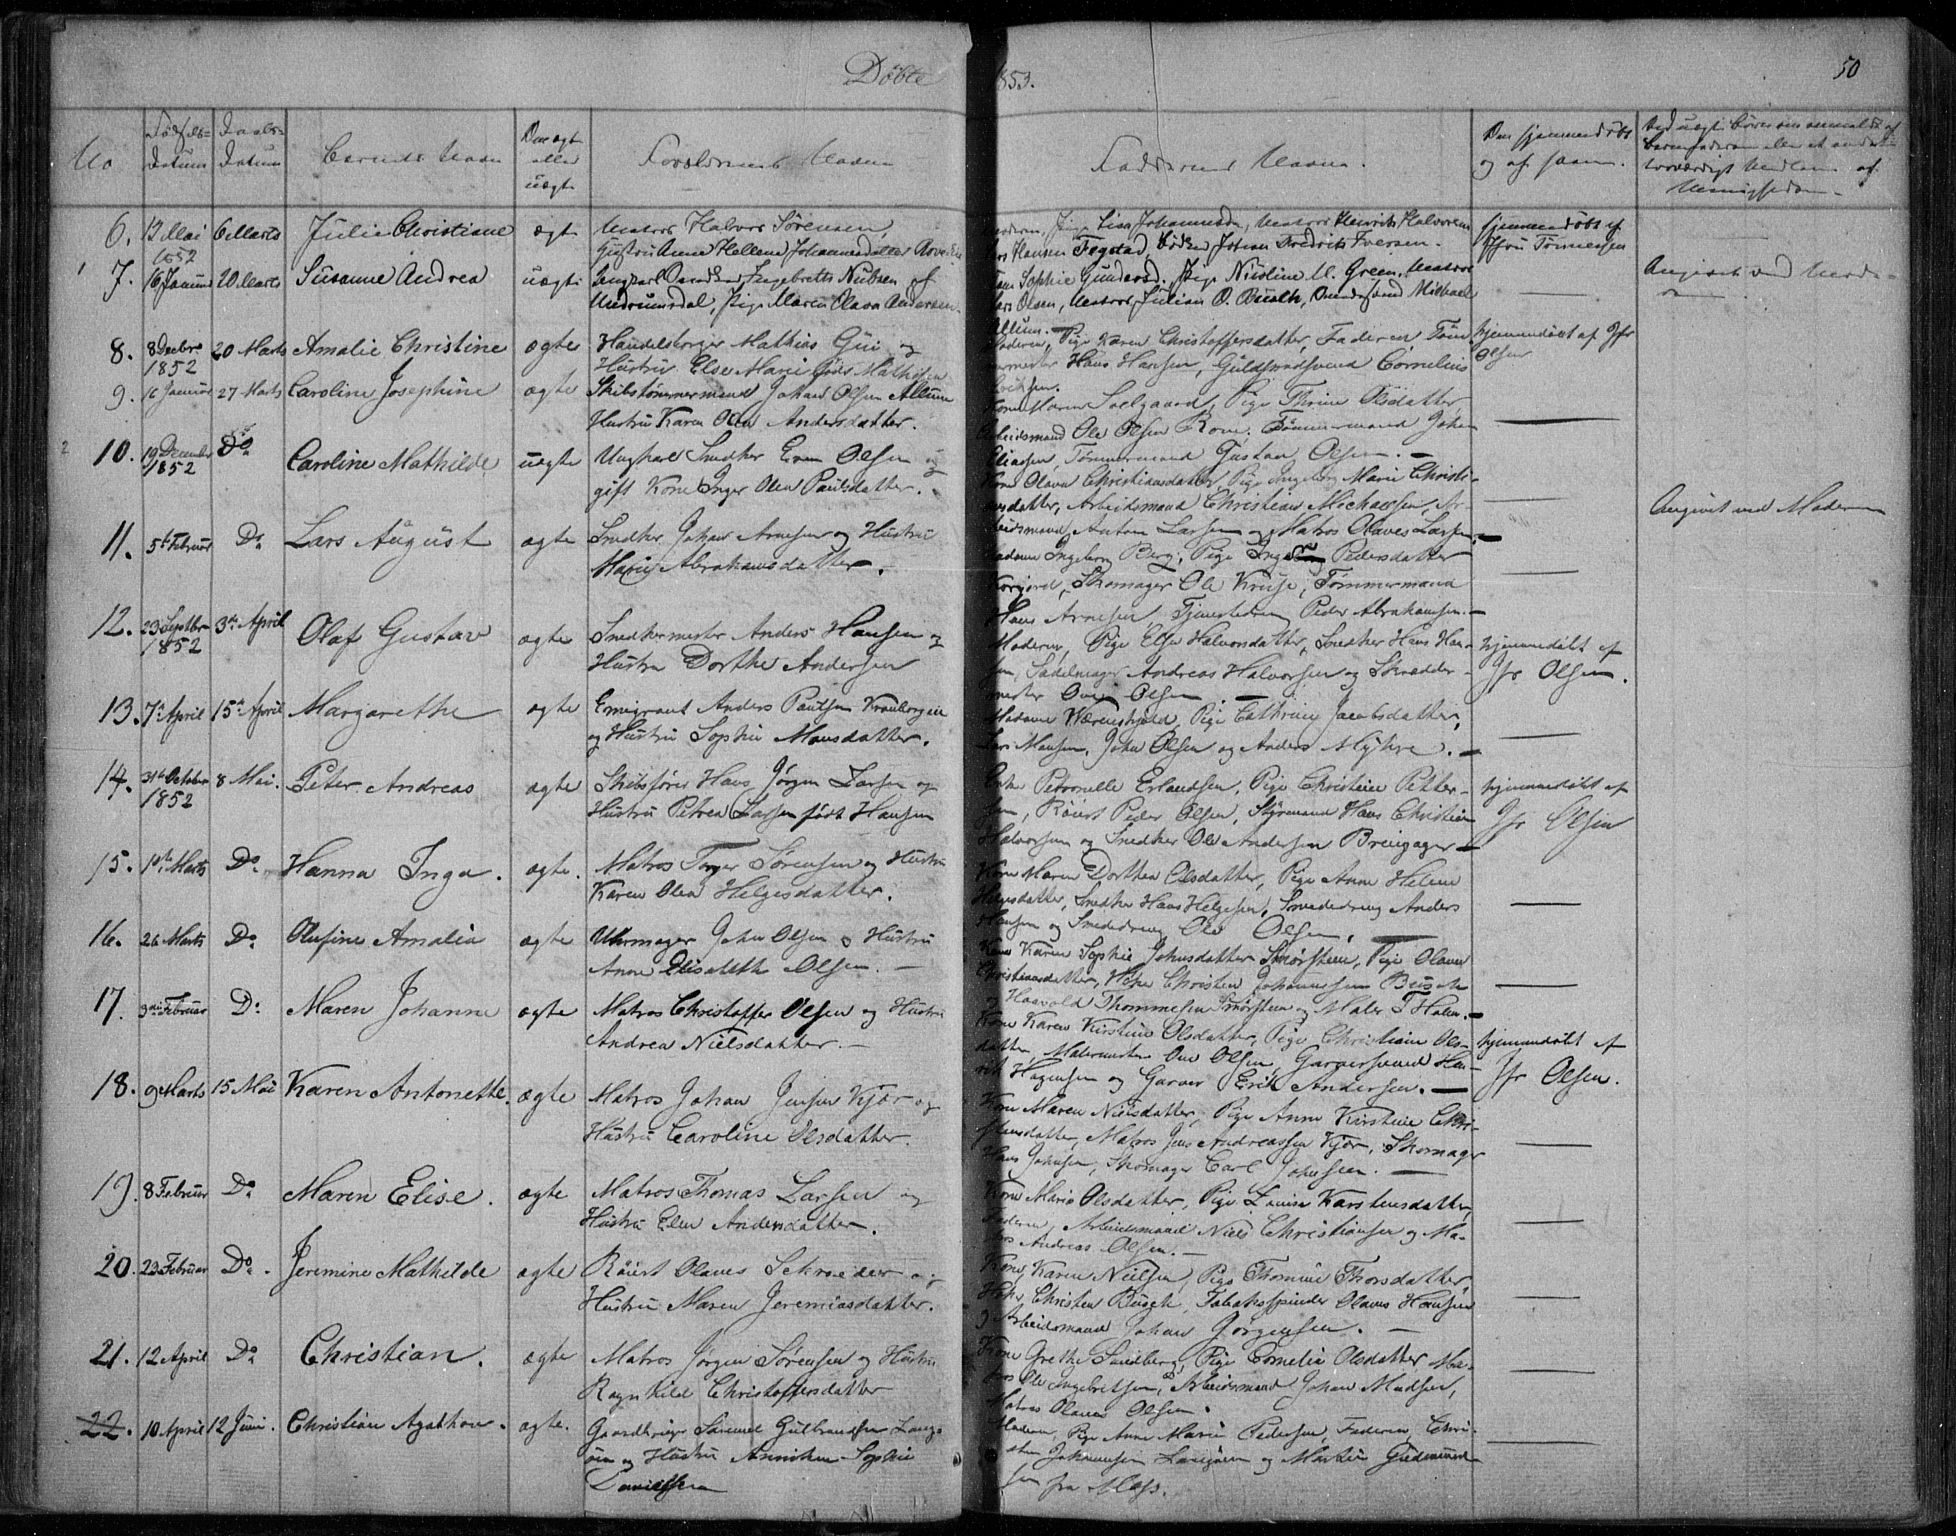 Døbte 1853.
50
No
Fødsels-
Datum
Daabs-
Datum
Barnets Navn
Om ægte
eller
uægte
Forældrenes Navne
Faddernes Navne.
Om hjemmedøbt
og af hvem.
6. 12 Mai 1852 6 Marts Julie Christiane ægte Matros Halvor Sørensen,
Hustru Anne Hellene Johannesdatter
Pige Lise Johannesen, Matros Henrik Halvorsen
Hansen Fogstad, Johan Fredrik Iversen.
hjemmedøbt af
Jfru Tønnessen
7. 16 Januar 20 Marts Susanne Andrea uægte Ungkarl Ingebrett Nubsen af
Pige Maren Olava Andersen.
Sophie Gundersd, Pige Nicoline M. Green, Matros
Lars Olsen, Matros Julius O. Buslk, Michael
Allum.
Angivet ved Mode-
ren.
8. 8 Decbr 1852 20 Marts Amalie Christine ægte Handelsborger Mathias Gui og
Hustru Else Marie født Mathisen
Moderen, Pige Karen Christoffersdatter, Faderen, Tøm-
mermester Hans Hansen, Guldsmedsvend Cornelius
Eriksen.
hjemmedøbt af Jfr
Olsen
9. 16 Januar 27 Marts Caroline Josephine ægte Skibstømmermand Johan Olsen Allum
Hustru Karen Olea Andersdatter.
Kone Maren Soelgaard, Pige Thrine Olsdatter,
Arbeidsmand Ole Olsen Kone, Tømmermand Johan
Eliassen, Tømmermand Gustav Olsen.
10. 19 December 1852 Do Caroline Mathilde uægte Ungkarl Snedker Even Olsen og
gift Kone Inger Olea Paulsdatter.
Kone Olava Christiansdatter, Pige Ingeborg Marie Christi-
ansdatter, Arbeidsmand Christian Michaelsen, Ar-
beidsmand Anton Larsen og Matros Olaves Larsen.
Angivet ved Moderen
11. 5te Februar Do Lars August ægte Snedker Johan Arnesen og Hustru
Marie Abrahamsdatter.
Madame Ingeborg Berg, Pige Inge Pedersdatter
Skomager Ole Kruse, Tømmermand
Hans Arnesen, Tjenestedreng Peder Abrahamsen.
12. 23 Septbr 1852 3die April Olaf Gustav ægte Snedkermester Anders Hansen og
Hustru Dorthe Andersen
Moderen, Pige Else Halvorsdatter, Snedker Hans Han-
sen, Sadelmager Andreas Halvorsen og Skrædder-
mester Ove Olsen.
hjemmedøbt af
Jfr Olsen.
13. 7de April 15de April Margarethe ægte Emigrant Anders Paulsen Kronborgeie
og Hustru Sophie Monsdatter.
Madame Wærenskjold, Pige Cathrine Jacobsdatter,
Lars Monsen, John Olsen og Anders Myhre.
14. 31te October 1852 8 Mai. Peter Andreas ægte Skibsfører Hans Jørgen Larsen og
Hustru Petrea Larsen født Hansen
Enke Petronelle Erlandsen, Pige Christine Petter-
sen, Røiert Peder Olsen, Styrmand Hans Christian
Halvorsen og Snedker Ole Andersen Breiigager
hjemmedøbt af
Jfr Olsen
15. 1ste Marts Do Hanna Inga. ægte. Matros Torger Sørensen og Hustru
Karen Olea Helgesdatter.
Kone Maren Dorthea Olsdatter, Pige Anne Helene
Helgesdatter, Snedker Hans Helgesen, Smededreng Anders
Hansen og Smededreng Ole Olsen.
16. 26 Marts Do Olufine Amalia ægte Uhrmager John Olsen og Hustru
Anne Elisabeth Olsen.
Kone Karen Sophie Johnsdatter Smørsteen, Pige Olave
Christiansdatter, Christen Johannesen Busch
Haavold Thommesen Smørsteen og Maler T Holm.
17. 3die Februar Do Maren Johanne ægte Matros Christoffer Olsen og Hustru
Andrea Nielsdatter.
Kone Karen Kirstine Olsdatter, Pige Christiane Ols-
datter, Malermester Ove Olsen, Garversvend Hen-
rik Hagensen og Garver Erik Andersen.
hjemmedøbt af
Jfr Olsen.
18. 9 Marts 15 Mai Karen Antonette. ægte Matros Johan Jensen Kjær og
Hustru Caroline Olsdatter.
Kone Maren Nielsdatter, Pige Anne Kirstine Chri-
stensdatter, Matros Jens Andreassen Kjær, Skomager
Hans Johnsen, Skomager Carl Johnsen.
19. 8 Februar Do Maren Elise. ægte Matros Thomas Larsen og
Hustru Elen Andersdatter.
Kone Maria Olsdatter, Pige Lovise Karstensdatter,
Faderen, Arbeidsmand Niels Christiansen og Ma-
tros Andreas Olsen.
20. 23 Februar Do. Jeremine Mathilde ægte Røiert Olaves Schrøeder og
Hustru Maren Jeremiasdatter.
Kone Karen Nielsen, Pige Thomine Thorsdatter
Christen Busch, Tobaksspinder Olaves Hansen
og Arbeidsmand Johan Jørgensen.
21. 12 April Do Christian. ægte Matros Jørgen Sørensen og Hustru
Ragnhild Christoffersdatter
Kone Grethe Sundberg, Pige Cornelia Olsdatter, Ma-
tros Ole Ingebretsen, Arbeidsmand Johan Madsen,
Matros Olaves Olsen.
22. 10 April 12 Juni. Christian Agathon. ægte. Gaardbruger Samuel Gulbrandsen Lang-
øen og Hustru Anniken Sophie
Danielsen
Moderen, Pige Anne Marie Pedersen, Faderen, Chri-
sten Johannesen Langøen og Martin Gudmund-
sen fra Moss.